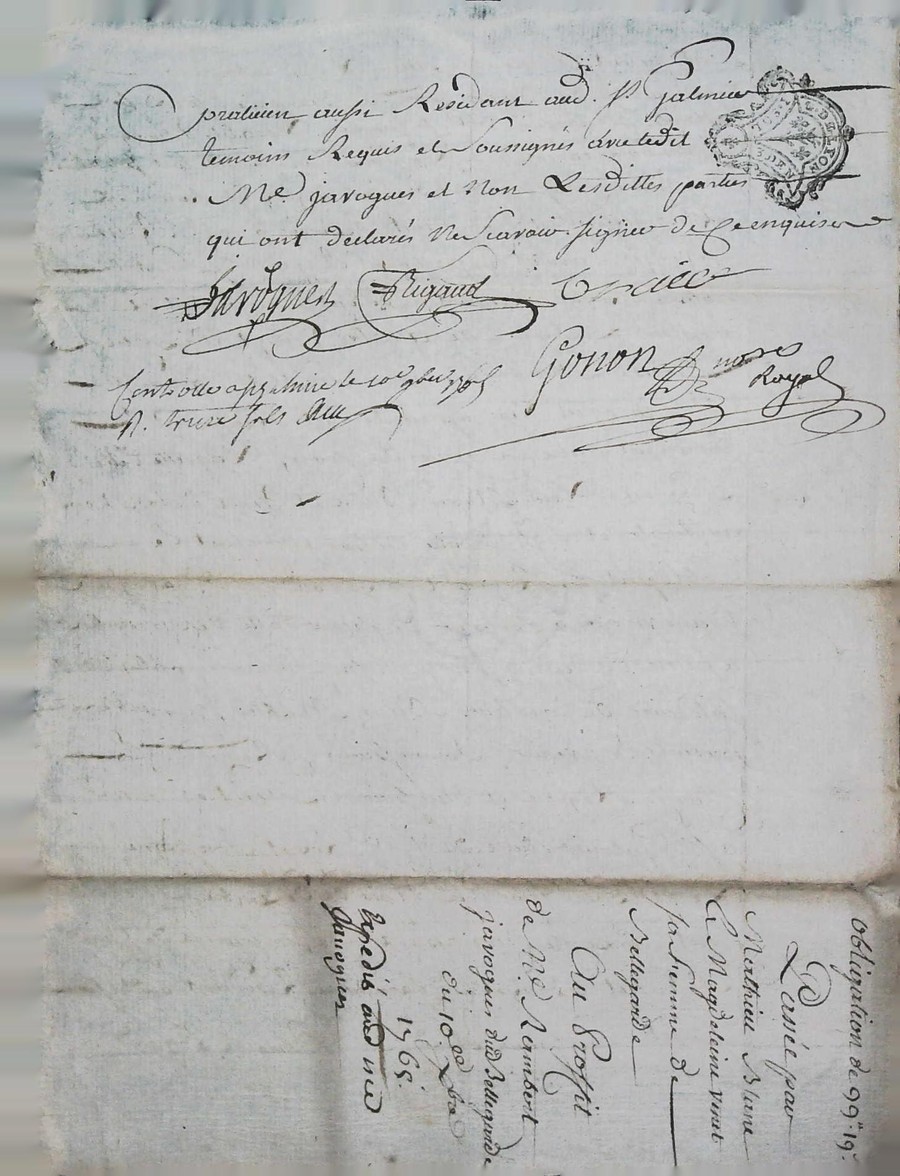 praticien aussi Residant aud. St Galmier
temoins Requis et Soussignés avec ledit
Me javogues et Non Lesdittes parties
qui ont declarés Ne Scavoir signer de Ce enquises
Javogues Rigaud
Gonon nore
Royal
Controllé a St galmier le 10e
R. treize sols
obligation de 99ll 19s
Passée par
Mathieu
Et Magdeleine
sa femme de
Bellegarde
Au Proffit
de Me Rambert
javogues dud Bellegarde
du 10e
1765
Expedié aud me
Javogues